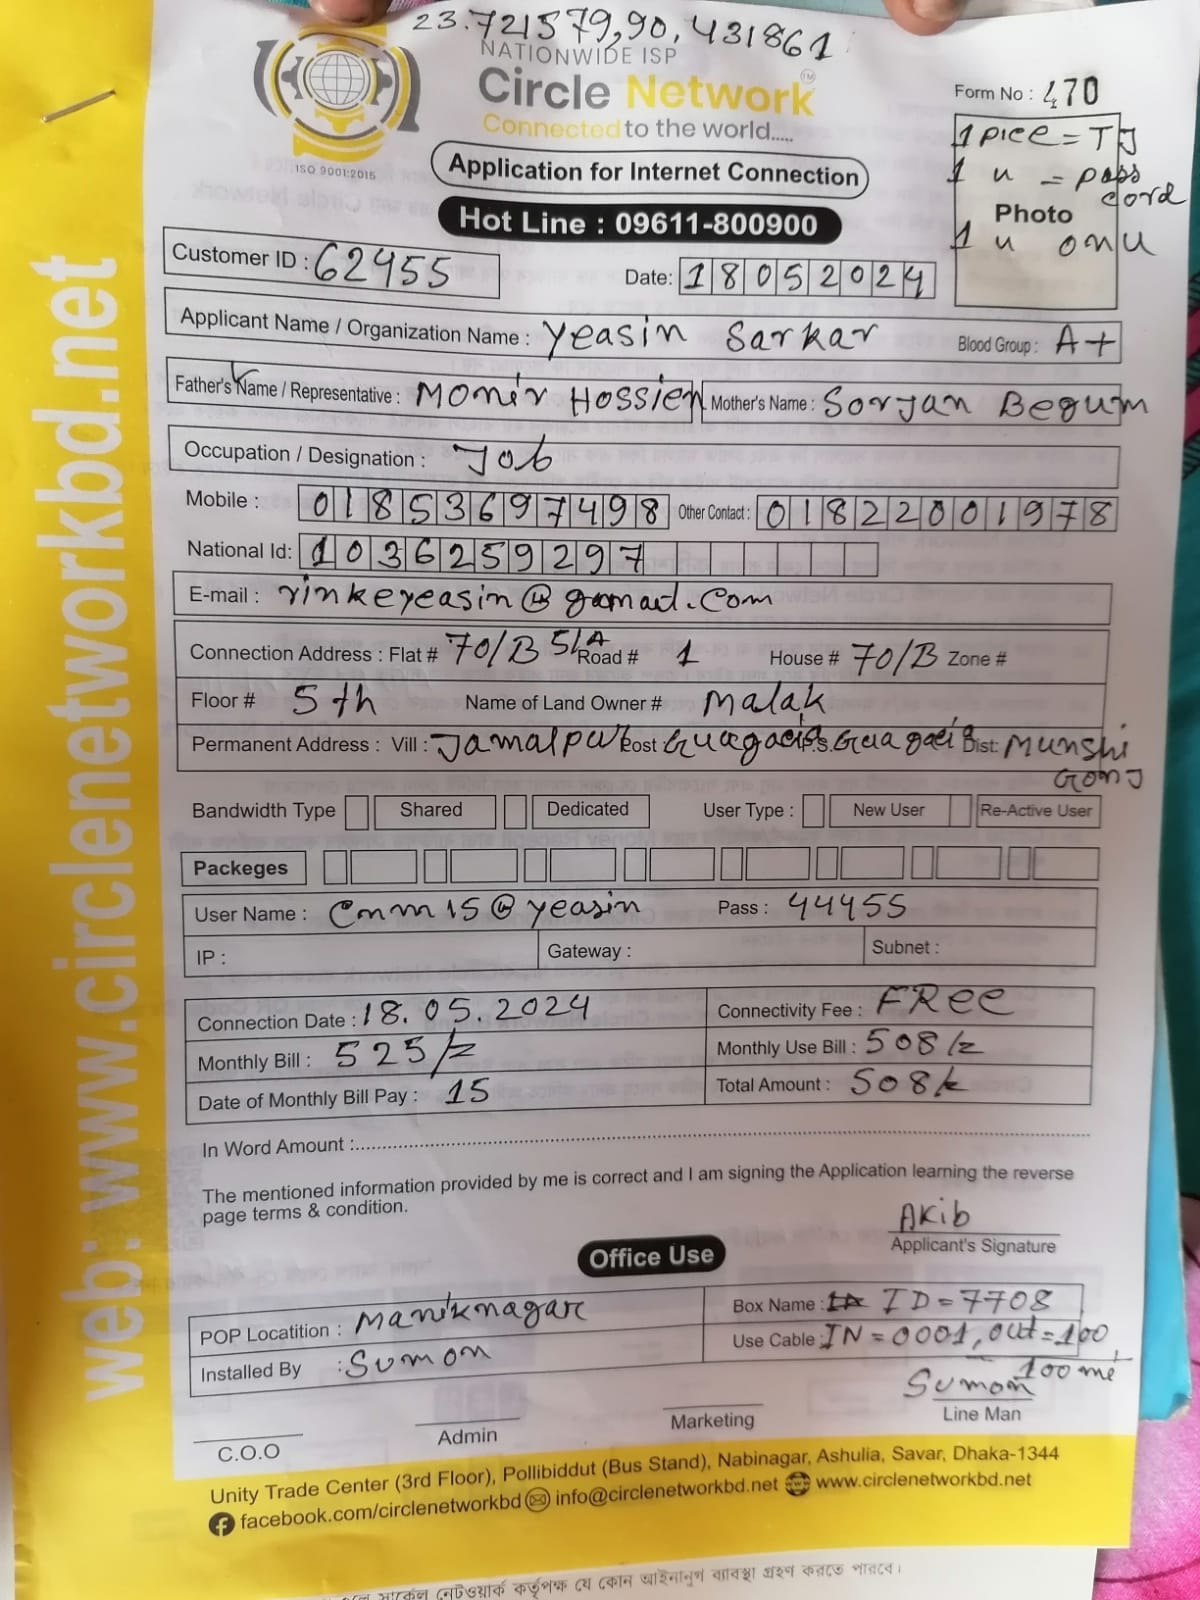 23.721579,90,431861
NATIONWIDE ISP
Circle Network TM
Connected to the world.....
ISO 9001:2015
Application for Internet Connection
Hot Line : 09611-800900
Form No : 470
1 pice = TJ
1 u = pass cord
Photo
1 u onu
Customer ID : 62455
Date: 18052024
Applicant Name / Organization Name : Yeasin Sarkar Blood Group : A+
Father's Name / Representative : Monir Hossien Mother's Name : Sorjan Begum
Occupation / Designation : Job
Mobile : 01853697498 Other Contact : 01822001978
National Id: 1036259297
E-mail : rinkeyeasin@gmail.com
Connection Address : Flat # 70/B 5/A Road # 1 House # 70/B Zone #
Floor # 5th Name of Land Owner # Malak
Permanent Address : Vill : Jamalpur Post P.S. Dist: Munshi
Gonj
Bandwidth Type Shared Dedicated User Type : New User Re-Active User
Packeges
User Name : Cnm15@yeasin Pass : 44455
IP : Gateway : Subnet :
Connection Date : 18.05.2024 Connectivity Fee : FRee
Monthly Bill : 525/= Monthly Use Bill : 508/=
Date of Monthly Bill Pay : 15 Total Amount : 508/=
In Word Amount :
The mentioned information provided by me is correct and I am signing the Application learning the reverse
page terms & condition.
Akib
Applicant's Signature
Office Use
POP Locatition : Maniknagar Box Name : ID=7708
Installed By : Sumon Use Cable : IN=0001, out=100
100 mi
Sumon
C.O.O Admin Marketing Line Man
Unity Trade Center (3rd Floor), Pollibiddut (Bus Stand), Nabinagar, Ashulia, Savar, Dhaka-1344
facebook.com/circlenetworkbd info@circlenetworkbd.net www.circlenetworkbd.net
web: www.circlenetworkbd.net
সার্কেল নেটওয়ার্ক কর্তৃপক্ষ যে কোন আইনানুগ ব্যাবস্থা গ্রহণ করতে পারবে।